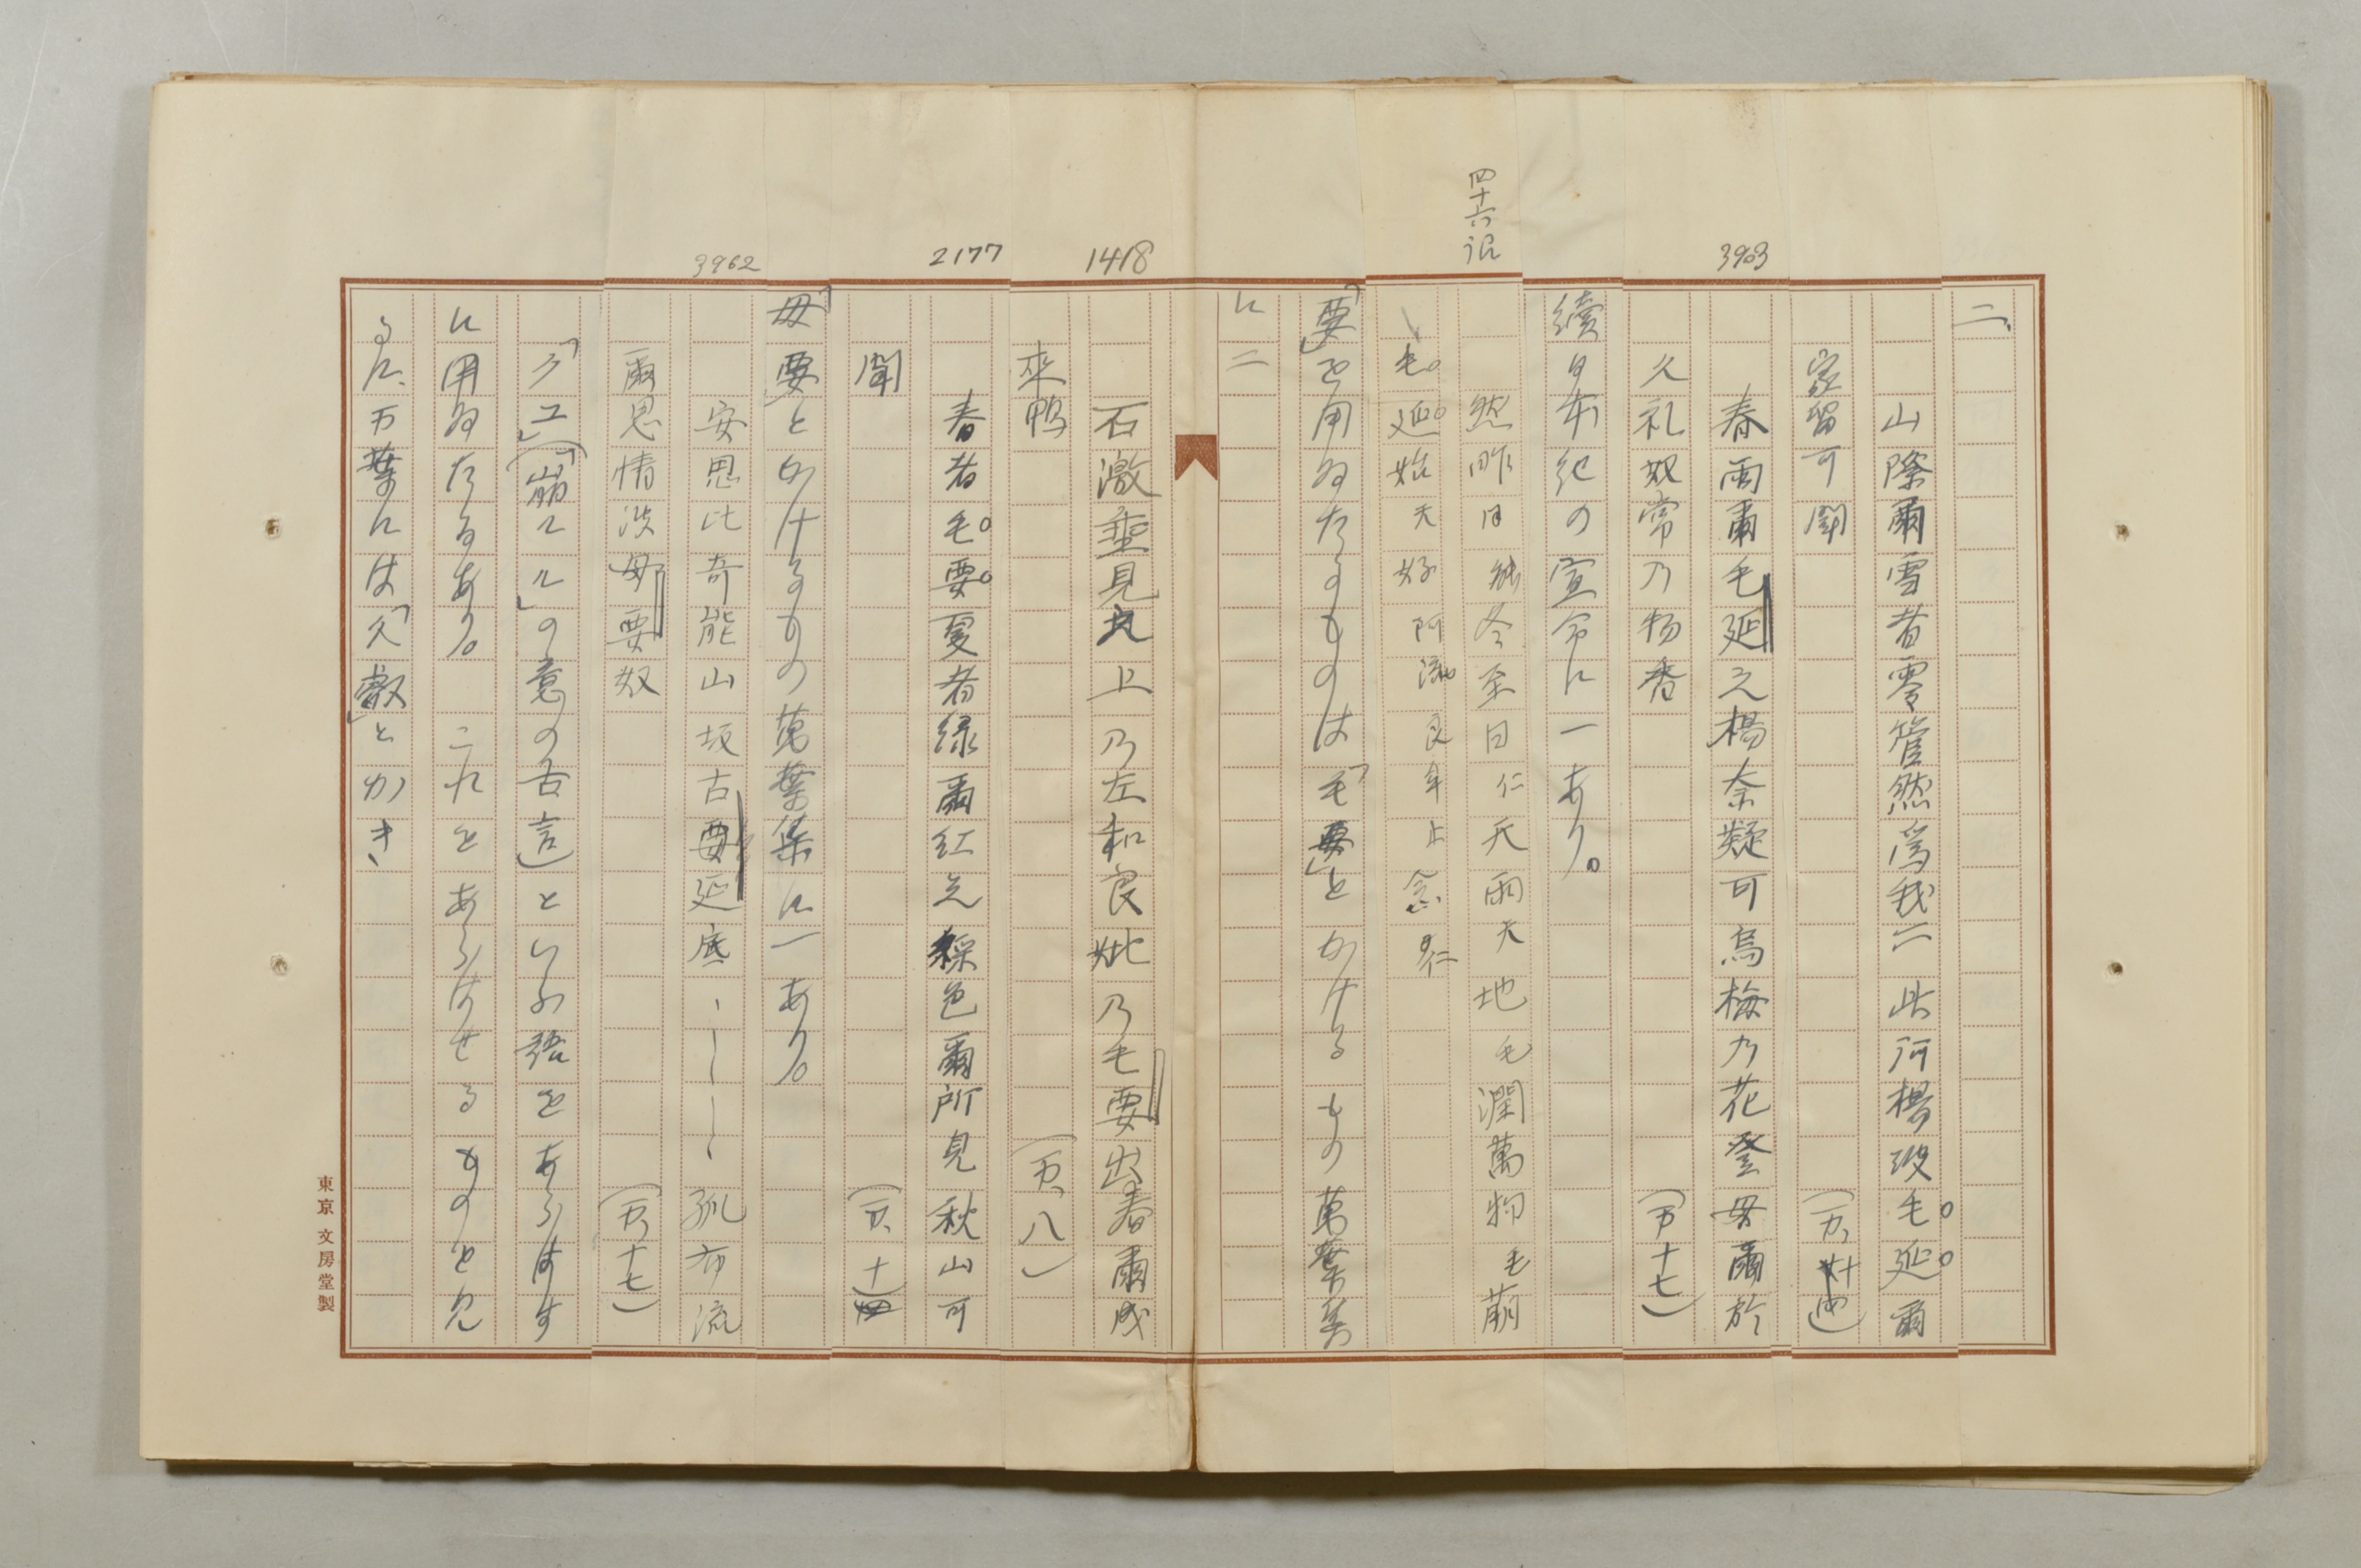 二、
山際爾雪者零管然為我二此河楊波毛延爾
家留可聞　（万、十）
3903
春雨爾毛延之楊奈疑可烏梅乃花登母爾於
久礼奴常乃物香　（万十七）
續日本紀の宣命に一あり。
四十六詔
然昨日能冬至日仁天雨天地毛潤萬物毛萠
毛延始天好阿流良牟止念
「要」を用ゐたるものは「毛要」とかけるもの萬葉集
に二
1418
石激垂見之上乃左和良妣乃毛要出春爾成
來鴨　（万、八）
2177
春者毛要夏者緑爾紅之綵色爾所見秋山可
聞　（万、十）
「母要」とかけるもの萬葉集に一あり。
3962
安思比奇能山坂古要延底、ーーー孤布流
爾思情波母要奴　（万、十七）
「クエ」（「崩ルル」の意の古言）といふ語をあらはす
に用ゐたるあり。　これをあらはせるものを見
るに、万葉には「久叡」とかき、
東京 文房堂製